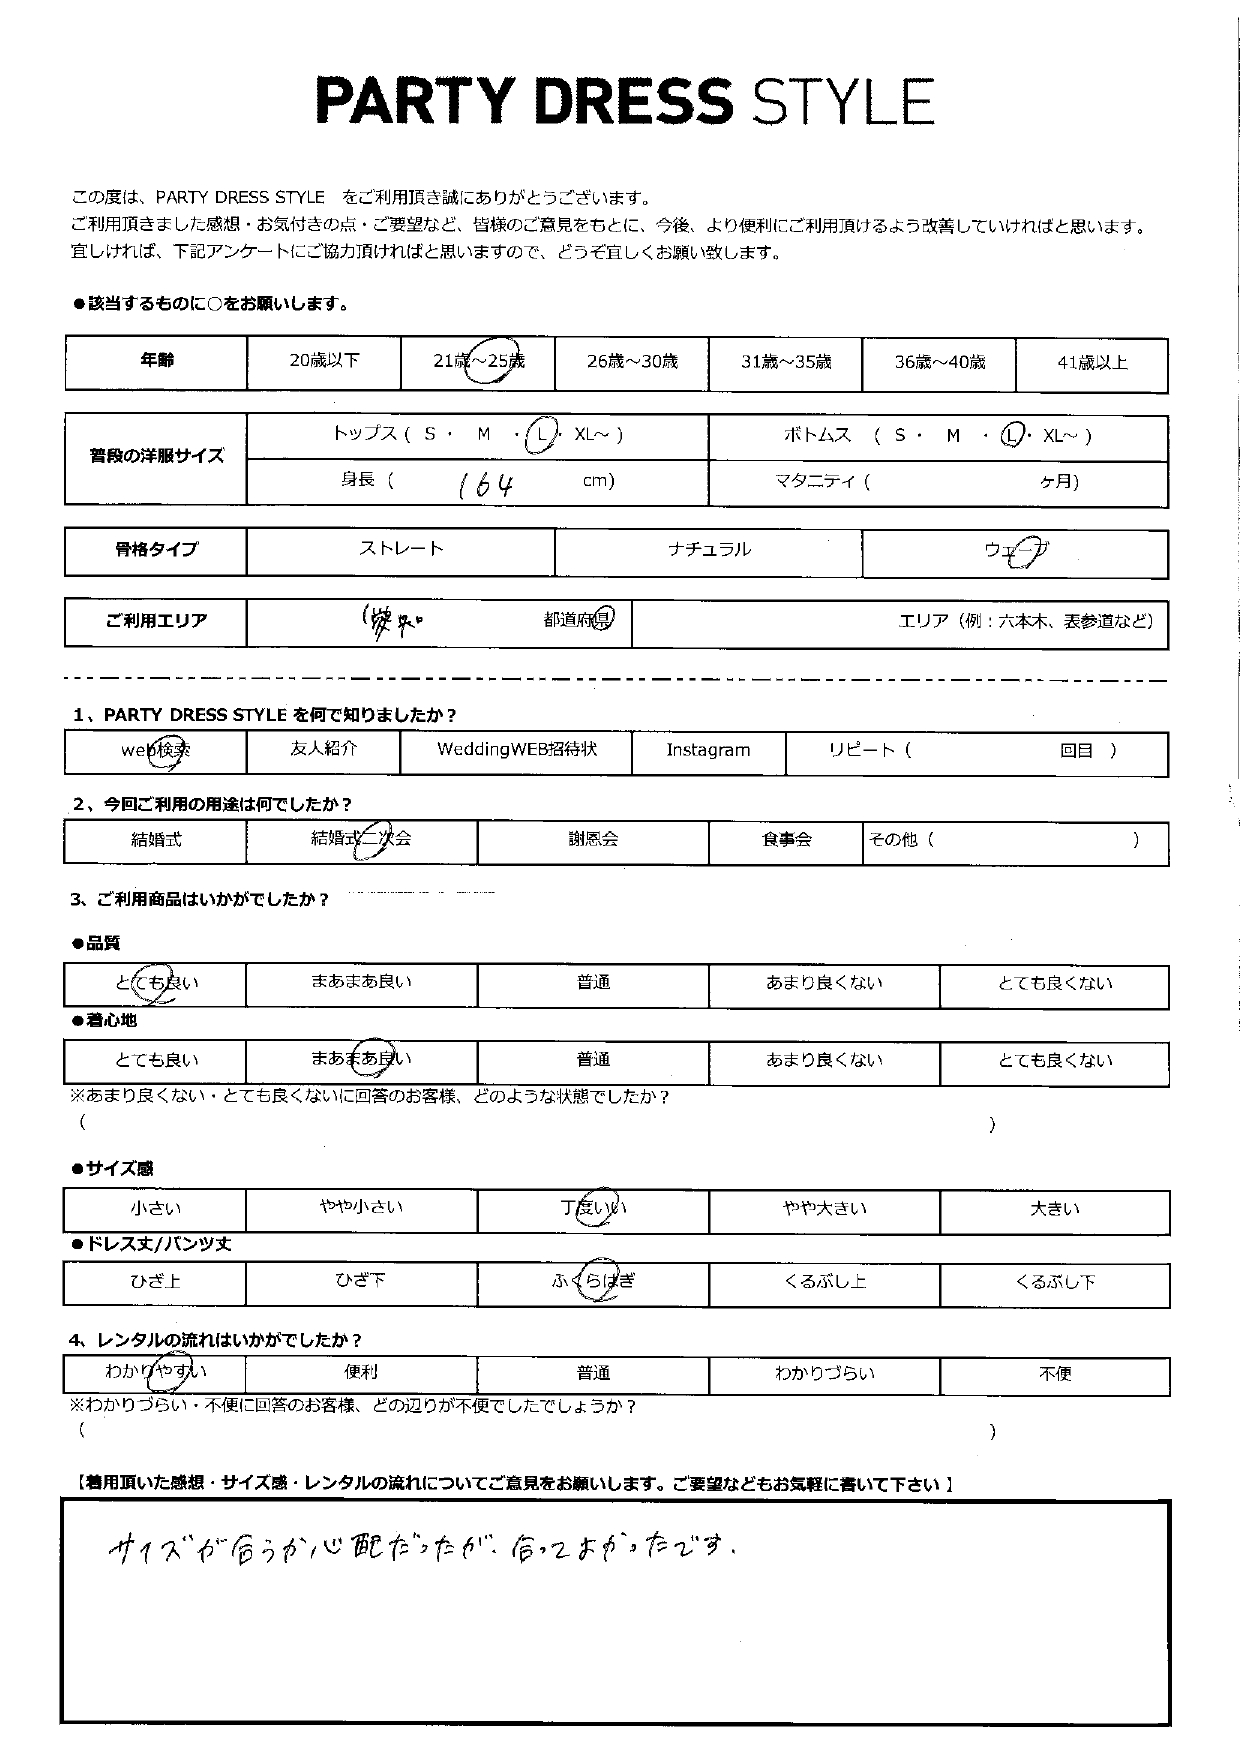 PARTY DRESS STYLE
この度は、PARTY DRESS STYLE をご利用頂き誠にありがとうございます。
ご利用頂きました感想・お気付きの点・ご要望など、皆様のご意見をもとに、今後、より便利にご利用頂けるよう改善していければと思います。
宜しければ、下記アンケートにご協力頂ければと思いますので、どうぞ宜しくお願い致します。
●該当するものに○をお願いします。
年齢 20歳以下 21歳～25歳 26歳～30歳 31歳～35歳 36歳～40歳 41歳以上
普段の洋服サイズ トップス ( S ・ M ・ L ・ XL～ ) ボトムス ( S ・ M ・ L ・ XL～ )
身長 ( 164 cm) マタニティ ( ヶ月)
骨格タイプ ストレート ナチュラル ウェーブ
ご利用エリア 都道府県 エリア（例：六本木、表参道など）
1、PARTY DRESS STYLE を何で知りましたか？
web検索 友人紹介 WeddingWEB招待状 Instagram リピート ( 回目 )
2、今回ご利用の用途は何でしたか？
結婚式 結婚式二次会 謝恩会 食事会 その他 ( )
3、ご利用商品はいかがでしたか？
●品質
とても良い まあまあ良い 普通 あまり良くない とても良くない
●着心地
とても良い まあまあ良い 普通 あまり良くない とても良くない
※あまり良くない・とても良くないに回答のお客様、どのような状態でしたか？
( )
●サイズ感
小さい やや小さい 丁度いい やや大きい 大きい
●ドレス丈/パンツ丈
ひざ上 ひざ下 ふくらはぎ くるぶし上 くるぶし下
4、レンタルの流れはいかがでしたか？
わかりやすい 便利 普通 わかりづらい 不便
※わかりづらい・不便に回答のお客様、どの辺りが不便でしたでしょうか？
( )
【着用頂いた感想・サイズ感・レンタルの流れについてご意見をお願いします。ご要望などもお気軽に書いて下さい】
サイズが合うか心配だったが、合ってよかったです.